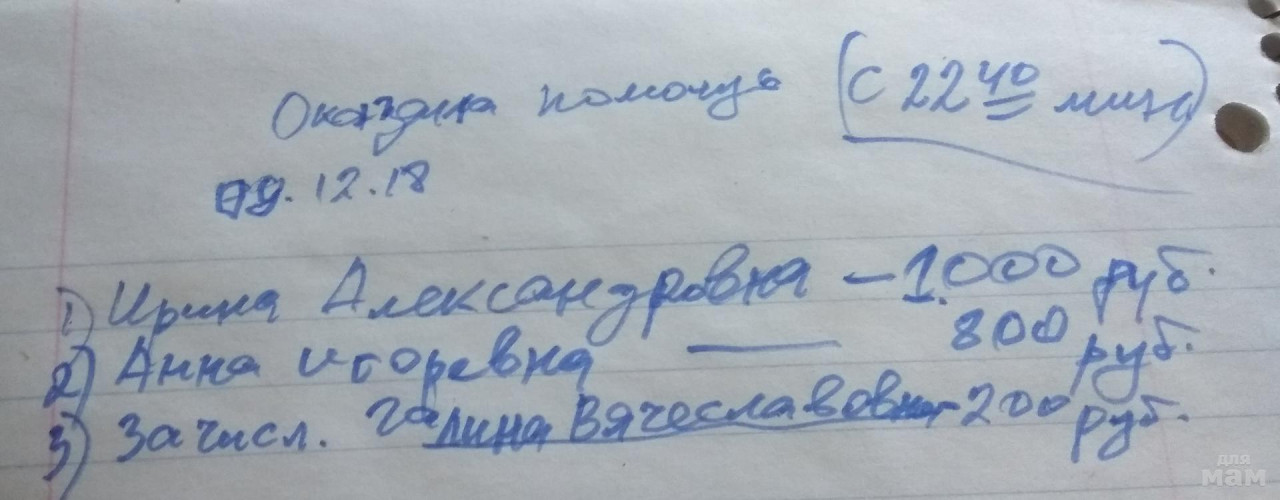 Оказана помощь (с 22 40 мин)
09.12.18
1) Ирина Александровна – 1.000 руб.
2) Анна Игоревна — 800 руб.
3) Зачисл. Галина Вячеславовна - 200 руб.
для
мам